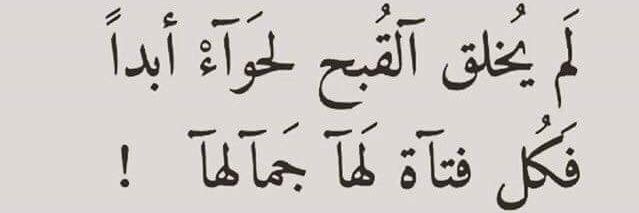 لَم يُخلق آلقُبح لحَوَآءْ أبداً
فَكُل فتآة لَهآ جَمآلهآ !